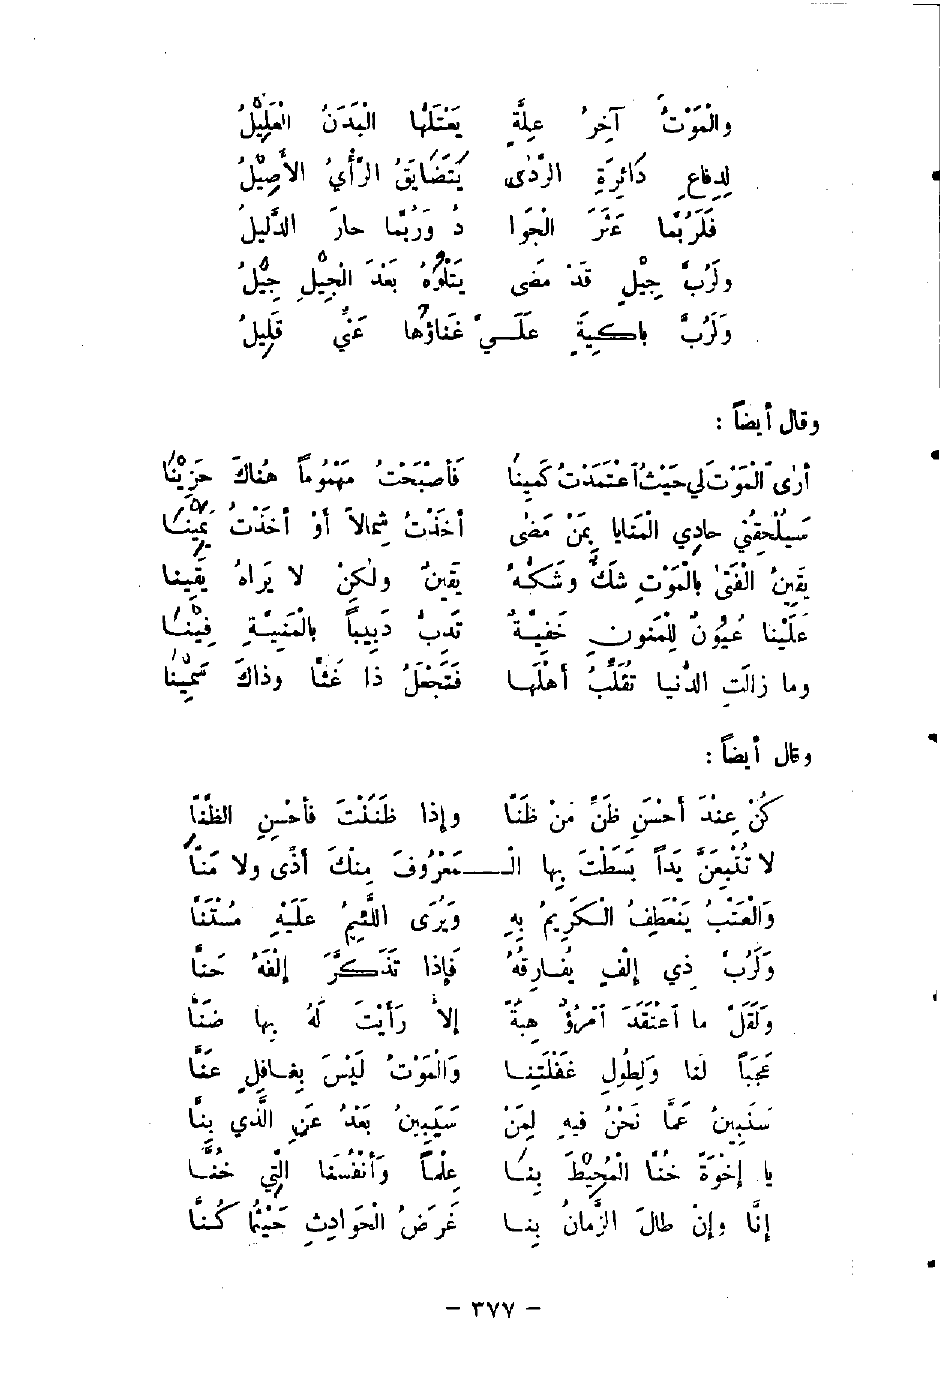 والْمَوْتُ آخِرُ عِلَّةٍ يَعْتَلُّهَا الْبَدَنُ الْعَلِيْلُ
لِدِفاعِ دَائِرَةِ الرَّدٰى يَتَضَايَقُ الرَّأْيُ الأَصِيْلُ
فَلَرُبَّمَا عَثَرَ الْجَوَا دُ وَرُبَّمَا حارَ الدَّلِيلُ
ولَرُبَّ جِيْلٍ قَدْ مَضَى يَتْلُوْهُ بَعْدَ الْجِيْلِ جِيْلُ
وَلَرُبَّ باكِيَةٍ عَلَيَّ غَنَاؤُهَا عَنِّي قَلِيلُ
وقال أيضاً :
أرٰى الْمَوْتَ لي حَيْثُ اعْتَمَدْتُ كَمِينا فَأَصْبَحْتُ مَهْمُوماً هُنَاكَ حَزِيْنا
سَيُلْحِقُنِي حادِي الْمَنَايا بِمَنْ مَضٰى أخَذْتُ شِمالاً أوْ أخَذْتُ يَمِيْنا
يَقِينُ الْفَتٰى بِالْمَوْتِ شَكٌّ وَشَكُّهُ يَقِينٌ ولٰكِنْ لا يَرَاهُ يَقِينا
عَلَيْنا عُيُوْنٌ لِلْمَنونِ خَفِيَّةٌ تَدِبُّ دَبِيباً بالْمَنِيَّةِ فِيْنا
وما زالَتِ الدُّنْيا تُقَلِّبُ أهْلَهَا فَتَجْعَلُ ذا غَثًّا وذاكَ سَمِيْنا
وقال أيضاً :
كُنْ عِنْدَ أحْسَنِ ظَنِّ مَنْ ظَنَّا وإذا ظَنَنْتَ فأحْسِنِ الظَّنَّا
لا تُتْبِعَنَّ يَداً بَسَطْتَ بِها الْـمَعْرُوفَ مِنْكَ أذًى ولا مَنَّا
وَالْعَتْبُ يَنْعَطِفُ الْكَرِيمُ بِهِ وَيُرَى اللَّئِيمُ عَلَيْهِ مُسْتَنَّا
وَلَرُبَّ ذِي إلْفٍ يُفارِقُهُ فَإذا تَذَكَّرَ إلْفَهُ حَنَّا
وَلَقَلَّ ما اعْتَقَدَ امْرُؤٌ هِبَةً إلاّ رَأَيْتَ لَهُ بِها ضَنَّا
عَجَباً لَنا وَلِطُولِ غَفْلَتِنا وَالْمَوْتُ لَيْسَ بِغافِلٍ عَنَّا
سَنَبِينُ عَمَّا نَحْنُ فيهِ لِمَنْ سَيَبِينُ بَعْدُ عَنِ الَّذي بِنَّا
يا إخْوَةً خُنَّا الْمُحِيْطَ بِنا عِلْماً وَأنْفُسَنا الَّتِي خُنَّا
إنَّا وإنْ طالَ الزَّمانُ بِنا غَرَضُ الْحَوادِثِ حَيْثُما كُنَّا
- ٣٧٧ -